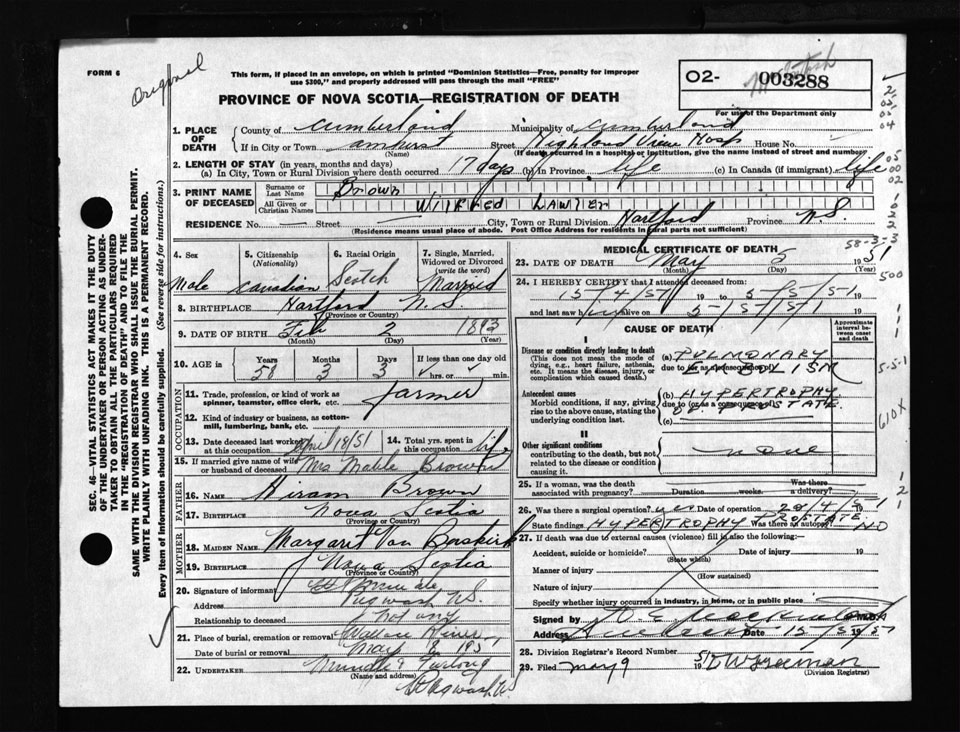 Original
FORM 6
This form, if placed in an envelope, on which is printed "Dominion Statistics—Free, penalty for improper
use $300," and properly addressed will pass through the mail "FREE"
02- 003288
PROVINCE OF NOVA SCOTIA—REGISTRATION OF DEATH
For use of the Department only
1. PLACE OF DEATH County of Cumberland Municipality of Cumberland
If in City or Town Amherst Street Highland View Hosp House No.
(Name) (If death occurred in a hospital or institution, give the name instead of street and number)
2. LENGTH OF STAY (in years, months and days)
(a) In City, Town or Rural Division where death occurred 17 days (b) In Province life (c) In Canada (if immigrant) life
3. PRINT NAME OF DECEASED Surname or Last Name Brown
All Given or Christian Names WILFRED LAWLER
RESIDENCE No. — Street — City, Town or Rural Division Hartford Province N.S.
(Residence means usual place of abode. Post Office Address for residents in rural parts not sufficient)
4. Sex Male
5. Citizenship (Nationality) Canadian
6. Racial Origin Scotch
7. Single, Married, Widowed or Divorced (write the word) Married
8. BIRTHPLACE Hartford N.S.
(Province or Country)
9. DATE OF BIRTH Feb 2 1893
(Month) (Day) (Year)
10. AGE in Years 58 Months 3 Days 3 If less than one day old hrs. or min.
OCCUPATION
11. Trade, profession, or kind of work as spinner, teamster, office clerk, etc. farmer
12. Kind of industry or business, as cotton-mill, lumbering, bank, etc.
13. Date deceased last worked at this occupation April 18/51
14. Total yrs. spent in this occupation life
15. If married give name of wife or husband of deceased Mrs Mable Brown
FATHER
16. NAME Hiram Brown
17. BIRTHPLACE Nova Scotia
(Province or Country)
MOTHER
18. MAIDEN NAME Margaret Van Buskirk
19. BIRTHPLACE Nova Scotia
(Province or Country)
20. Signature of informant
Address Pugwash N.S.
Relationship to deceased not any
21. Place of burial, cremation or removal Wallace River
Date of burial or removal May 8 1951
22. UNDERTAKER
(Name and address)
Pugwash N.S.
MEDICAL CERTIFICATE OF DEATH
58-3-3
23. DATE OF DEATH May 5 1951
(Month) (Day) (Year)
24. I HEREBY CERTIFY that I attended deceased from:
15/4/51 19 to 5/5/51 19
and last saw him alive on 5/5/51 19
500
CAUSE OF DEATH
Approximate interval between onset and death
I
Disease or condition directly leading to death
(This does not mean the mode of dying, e.g., heart failure, asthenia, etc. It means the disease, injury, or complication which caused death.)
(a) PULMONARY EMBOLISM
due to (or as a consequence of)
5-5-1
Antecedent causes
Morbid conditions, if any, giving rise to the above cause, stating the underlying condition last.
(b) HYPERTROPHY OF PROSTATE.
due to (or as a consequence of)
(c)
610X
II
Other significant conditions
contributing to the death, but not related to the disease or condition causing it.
none
25. If a woman, was the death associated with pregnancy? Duration weeks. Was there a delivery?
26. Was there a surgical operation? yes Date of operation 28/4/51
State findings HYPERTROPHY PROSTATE. Was there an autopsy? NO
27. If death was due to external causes (violence) fill in also the following:—
Accident, suicide or homicide? Date of injury 19
(State which)
Manner of injury
(How sustained)
Nature of injury
Specify whether injury occurred in industry, in home, or in public place
Signed by
Address Amherst Date 15/5/1951
28. Division Registrar's Record Number 51
29. Filed May 9 19
(Division Registrar)
SEC. 46—VITAL STATISTICS ACT MAKES IT THE DUTY
OF THE UNDERTAKER OR PERSON ACTING AS UNDER-
TAKER TO OBTAIN ALL THE PARTICULARS REQUIRED
IN THE "REGISTRATION OF DEATH" AND TO FILE THE
SAME WITH THE DIVISION REGISTRAR WHO SHALL ISSUE THE BURIAL PERMIT.
WRITE PLAINLY WITH UNFADING INK. THIS IS A PERMANENT RECORD.
Every item of information should be carefully supplied. (See reverse side for instructions.)